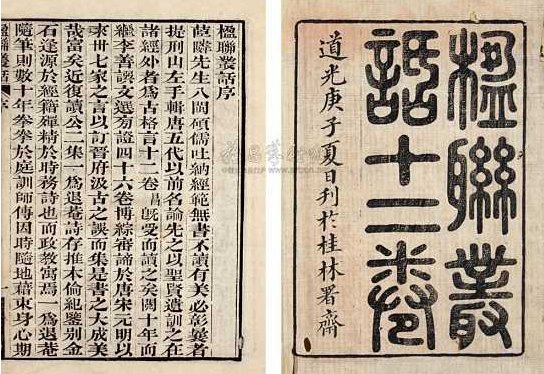 楹聯叢
話十二卷
道光庚子夏日刊於桂林署齋
楹聯叢話序
茝隣先生八閩碩儒吐納經範無書不讀有美必彰曩者
提刑山左手輯唐五代以前名論先之以聖賢遺訓之在
諸經外者爲古格言十二卷昌旣愛而讀之矣閱十年而
繼李善譔文選旁證四十六卷博綜審諦於唐宋元明以
來卅七家之言以訂晉府汲古之誤而集是書之大成美
哉富矣近復讀公二集一爲退菴詩存推本倫紀鑒別金
石逢源於經籍殫精於時務詩也而政教寓焉一爲退菴
隨筆則數十年拳拳於庭訓師傳因時隨地藉束身心期
楹聯叢話 序 一